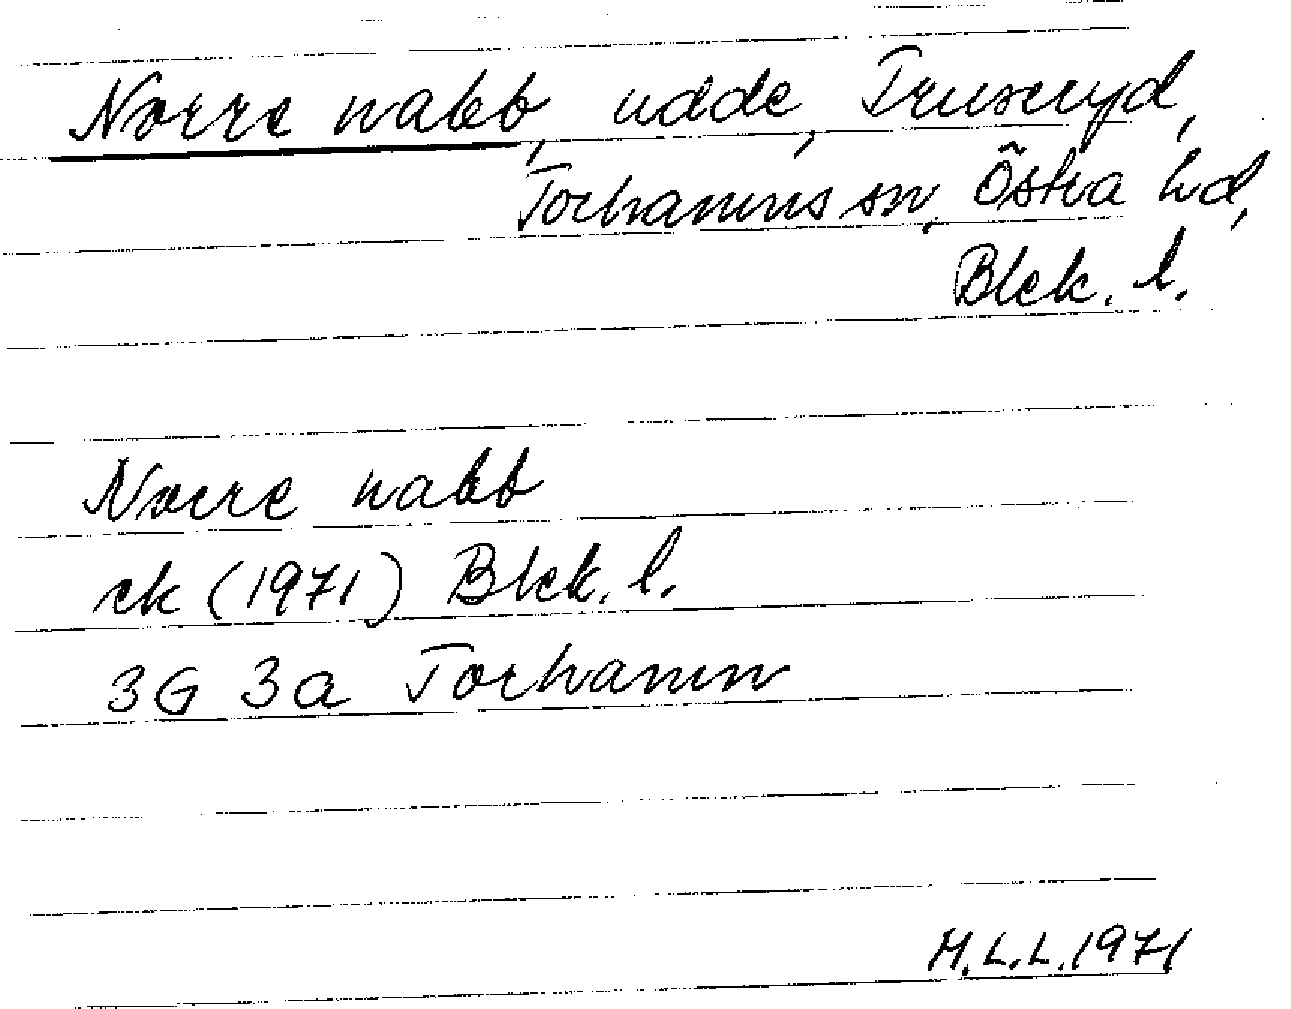 Norre nabb, udde, Truseryd,
Torhamns sn, Östra hd,
Blek. l.
Norre nabb
ek (1971) Blek. l.
3G 3a Torhamn
M.L.L. 1971